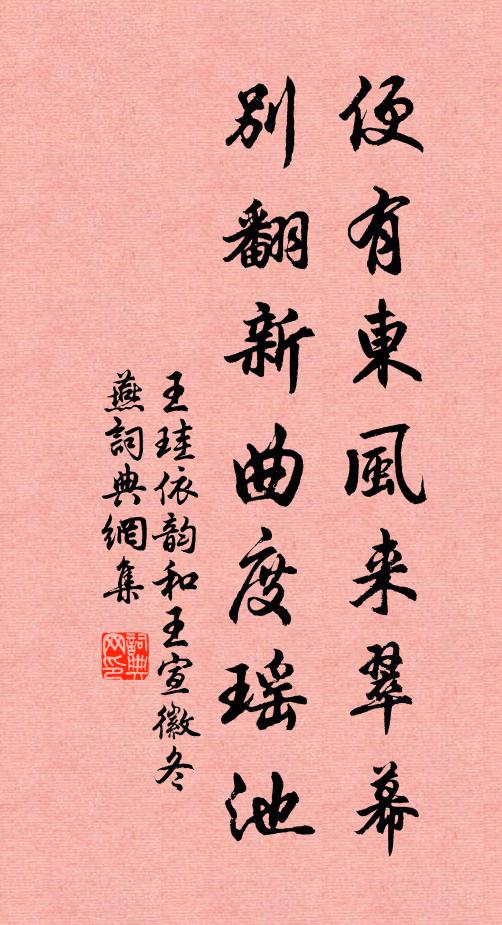 便有東風来翠幕
別翻新曲度瑶池
王珪依韵和王宣徽冬
燕詞典網集
詞典
网印